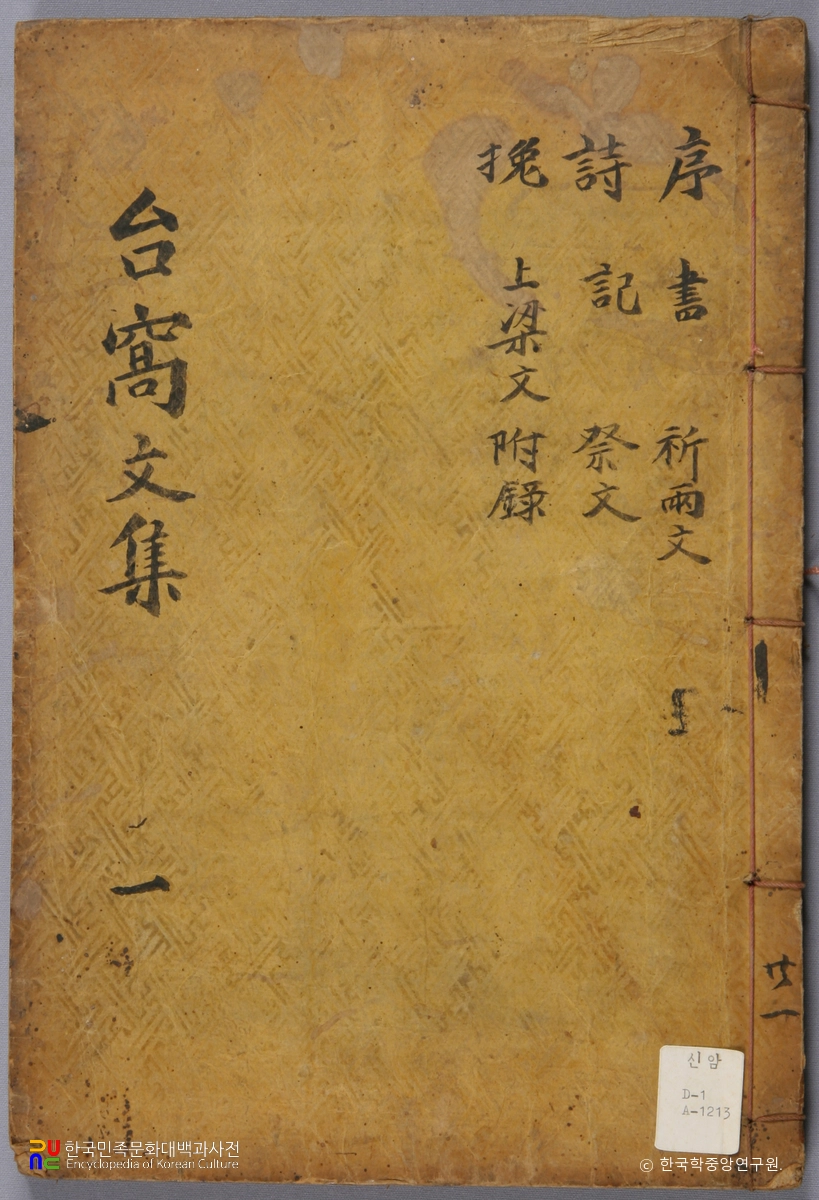 序 書 祈雨文
詩 記 祭文
挽 上梁文 附錄
台窩文集 一
共一
신암
D-1
A-1213
한국민족문화대백과사전
Encyclopedia of Korean Culture
© 한국학중앙연구원